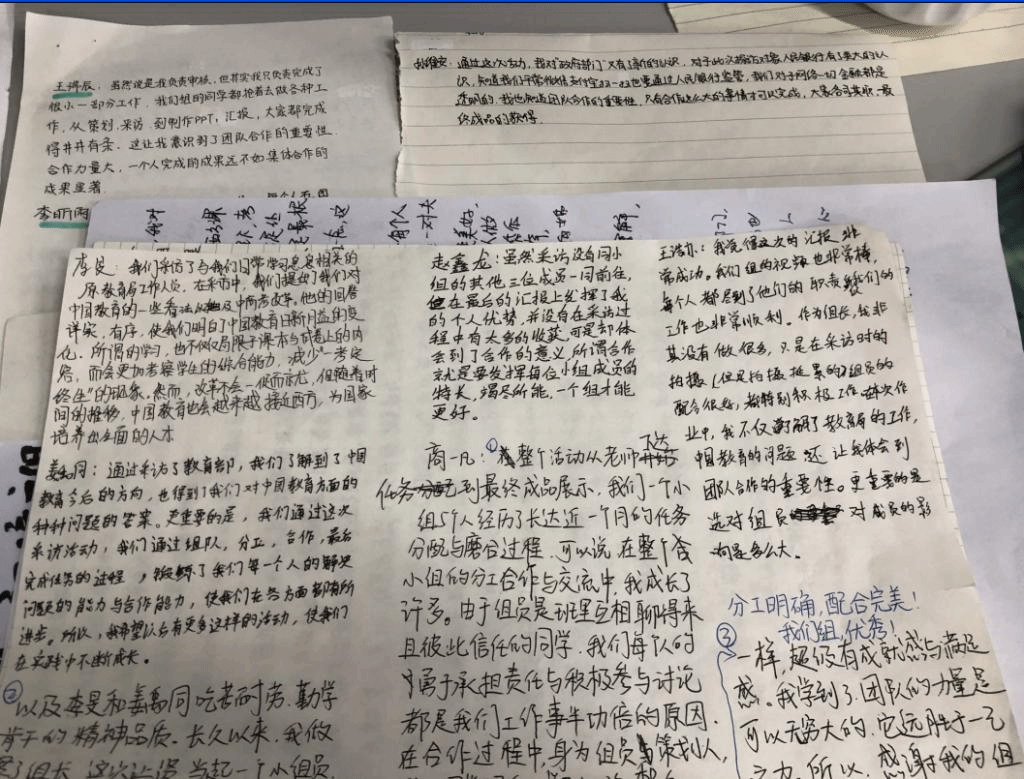 王禩辰：虽然说是我负责审核，但其实我只负责完成了
很小一部分工作，我们组的同学都抢着去做各种工
作，从策划，采访，到制作PPT，汇报，大家都完成
得井井有条。这让我意识到了团队合作的重要性，
合作力量大，一个人完成的成果远不如集体合作的
成果显著
李昕雨
通过这次活动，我对"政府部门"又有了新的认识，对于此次探访对象人民银行有了更大的认
识，知道我们平常微信支付宝也要通过人民银行监管，我们对于网络一切金融都是
透明的，我也知道团队合作的重要性，只有合作这么大的事情才可以完成，大家各司其职，最
终成品的获得
李旻：我们采访了与我们日常学习息息相关的
原教育局工作人员，在采访中，我们提出了我们对
中国教育的一些看法以及中高考改革，他的回答
详实，有序，使我们明白了中国教育日新月益的变
化，所谓的学习，也不仅局限于课本与试卷上的内
容，而会更加考察学生的综合能力，减少"一考定
终生"的现象。然而，改革不会一蹴而就，但随着时
间的推移，中国教育也会越来越接近西方，为国家
培养出全面的人才
姜禹同：通过采访了教育部，我们了解到了中国
教育今后的方向，也得到了我们对中国教育方面的
种种问题的答案。更重要的是，我们通过这次
采访活动，我们通过组队，分工，合作，最后
完成任务的过程，锻炼了我们每一个人的解决
问题的能力与合作能力，使我们在各方面都有所
进步。所以，我希望以后有更多这样的活动，使我们
在实践中不断成长。
② 以及李旻和姜禹同吃苦耐劳、勤学
肯干的精神品质。长久以来，我做
组长，这次让 当起一个小组员，
赵鑫龙：虽然采访没有同小
组的其他三位成员一同前往，
但在最后的汇报上发挥了我
的个人优势，并没有在采访过
程中有太多的收获，可是却体
会到了合作的意义，所谓合作
就是要发挥每位小组成员的
特长，竭尽所能，一个组才能
更好。
① 高一凡：整个活动从老师下达
任务到最终成品展示，我们一个小
组5个人经历了长达近一个月的任务
分配与磨合过程，可以说在整个
小组的分工合作与交流中，我成长了
许多。由于组员是班里互相聊得来
且彼此信任的同学，我们每个人的
勇于承担责任与积极参与讨论
都是我们工作事半功倍的原因，
在合作过程中，身为组员与策划人，
王浩力：我觉得这次的汇报非
常成功。我们组的视频也非常棒，
每个人都尽到了他们的职责，我们的
工作也非常顺利。作为组长，我非
其没有做很多，只是在采访时的
拍摄（但是拍摄挺累的）组员的
配合很好，都特别积极工作，在这次作
业中，我不仅了解了教育局的工作，
中国教育的问题，还让我体会到
团队合作的重要性。更重要的是
选对组员对成员的影
响是多么大。
分工明确，配合完美！
我们组，优秀！
③ 一样，超级有成就感与满足
感。我学到了，团队的力量是
可以无穷大的，它远胜于一己
之力。所以，感谢我的组